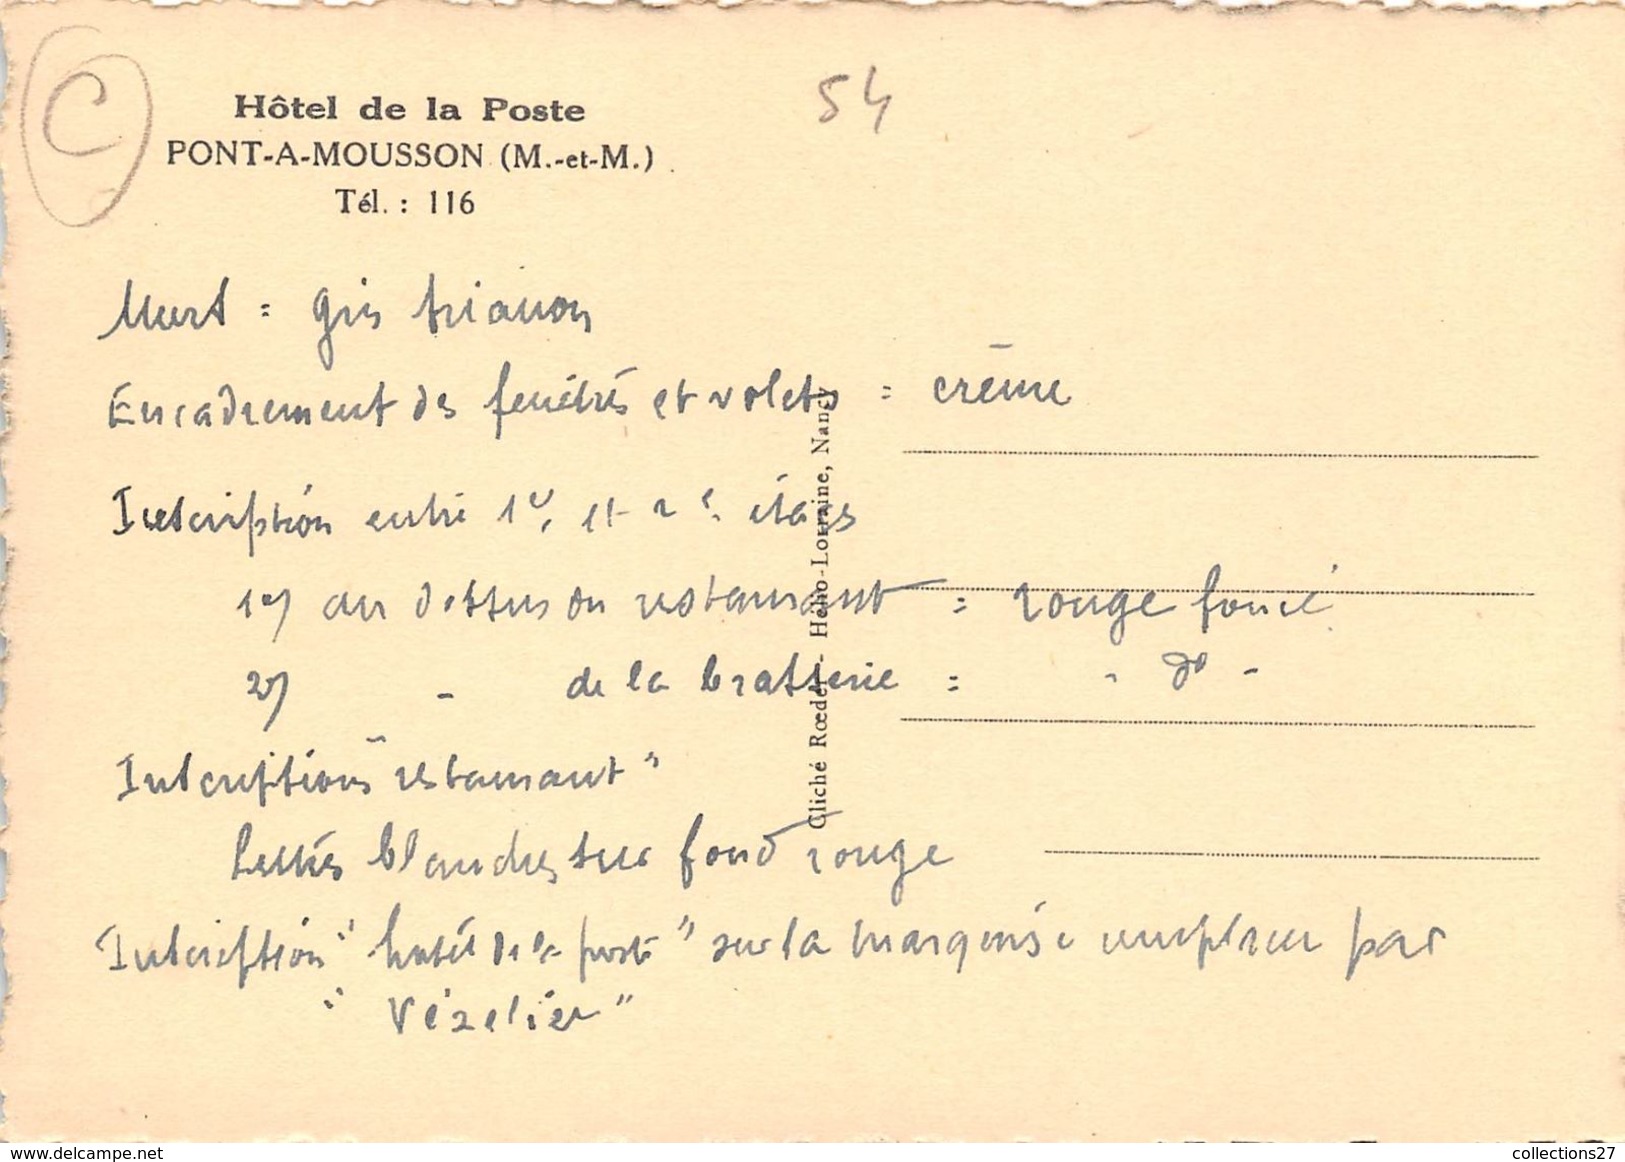 C
54
Hôtel de la Poste
PONT-A-MOUSSON (M.-et-M.)
Tél. : 116
Murs = gris trianon
Encadrement des fenêtres et volets = crème
Inscription entre 1er et 2e étages
1°/ au dessus du restaurant = rouge foncé
2°/ - de la brasserie = - do -
Inscriptions "restaurant"
lettres blanches sur fond rouge
Inscription "hotel de la poste" sur la marquise remplacer par
"Vézelier"
Cliché Rœder - Hélio-Lorraine, Nancy
delcampe.net
collections27